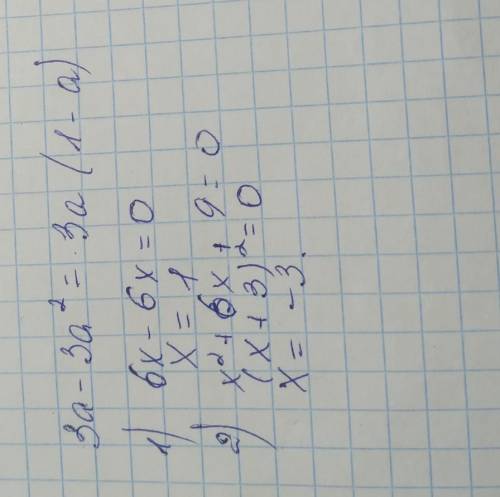 3a - 3a² = 3a (1 - a)
1) 6x - 6x = 0
x = 1
2) x² + 6x + 9 = 0
(x + 3)² = 0
x = -3.